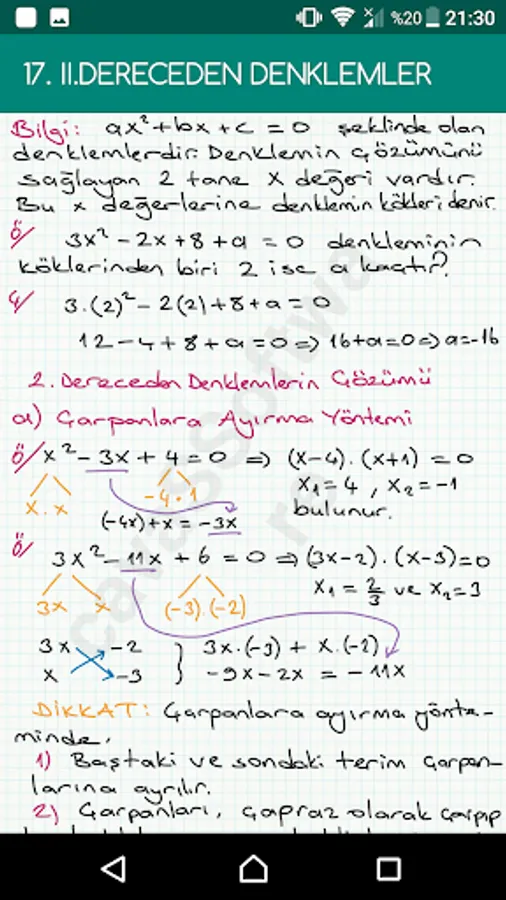 %20 21:30
17. II.DERECEDEN DENKLEMLER
Bilgi: ax²+bx+c=0 şeklinde olan
denklemlerdir. Denklemin çözümünü
sağlayan 2 tane x değeri vardır.
Bu x değerlerine denklemin kökleri denir.
Ö/ 3x²-2x+8+a=0 denkleminin
köklerinden biri 2 ise a kaçtır?
Ç/ 3.(2)²-2(2)+8+a=0
12-4+8+a=0⇒16+a=0⇒a=-16
2. Dereceden Denklemlerin Çözümü
a) Çarpanlara Ayırma Yöntemi
Ö/ x²-3x+4=0 ⇒ (x-4).(x+1)=0
x.x -4.1 x₁=4, x₂=-1
(-4x)+x=-3x bulunur.
Ö/ 3x²-11x+6=0⇒(3x-2).(x-3)=0
3x x (-3).(-2) x₁=2/3 ve x₂=3
3x -2 } 3x.(-3)+x.(-2)
x -3 } -9x-2x=-11x
DİKKAT: Çarpanlara ayırma yönte-
minde,
1) Baştaki ve sondaki terim çarpan-
larına ayrılır.
2) Çarpanları, çapraz olarak çarpıp